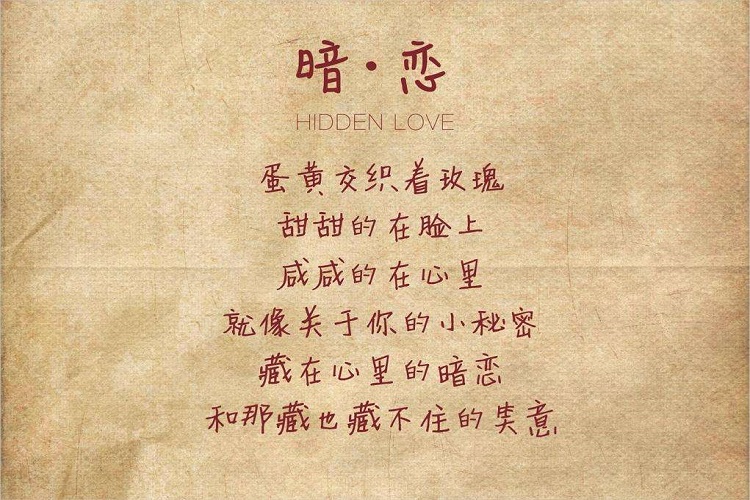 暗·恋
HIDDEN LOVE
蛋黄交织着玫瑰
甜甜的在脸上
咸咸的在心里
就像关于你的小秘密
藏在心里的暗恋
和那藏也藏不住的失意